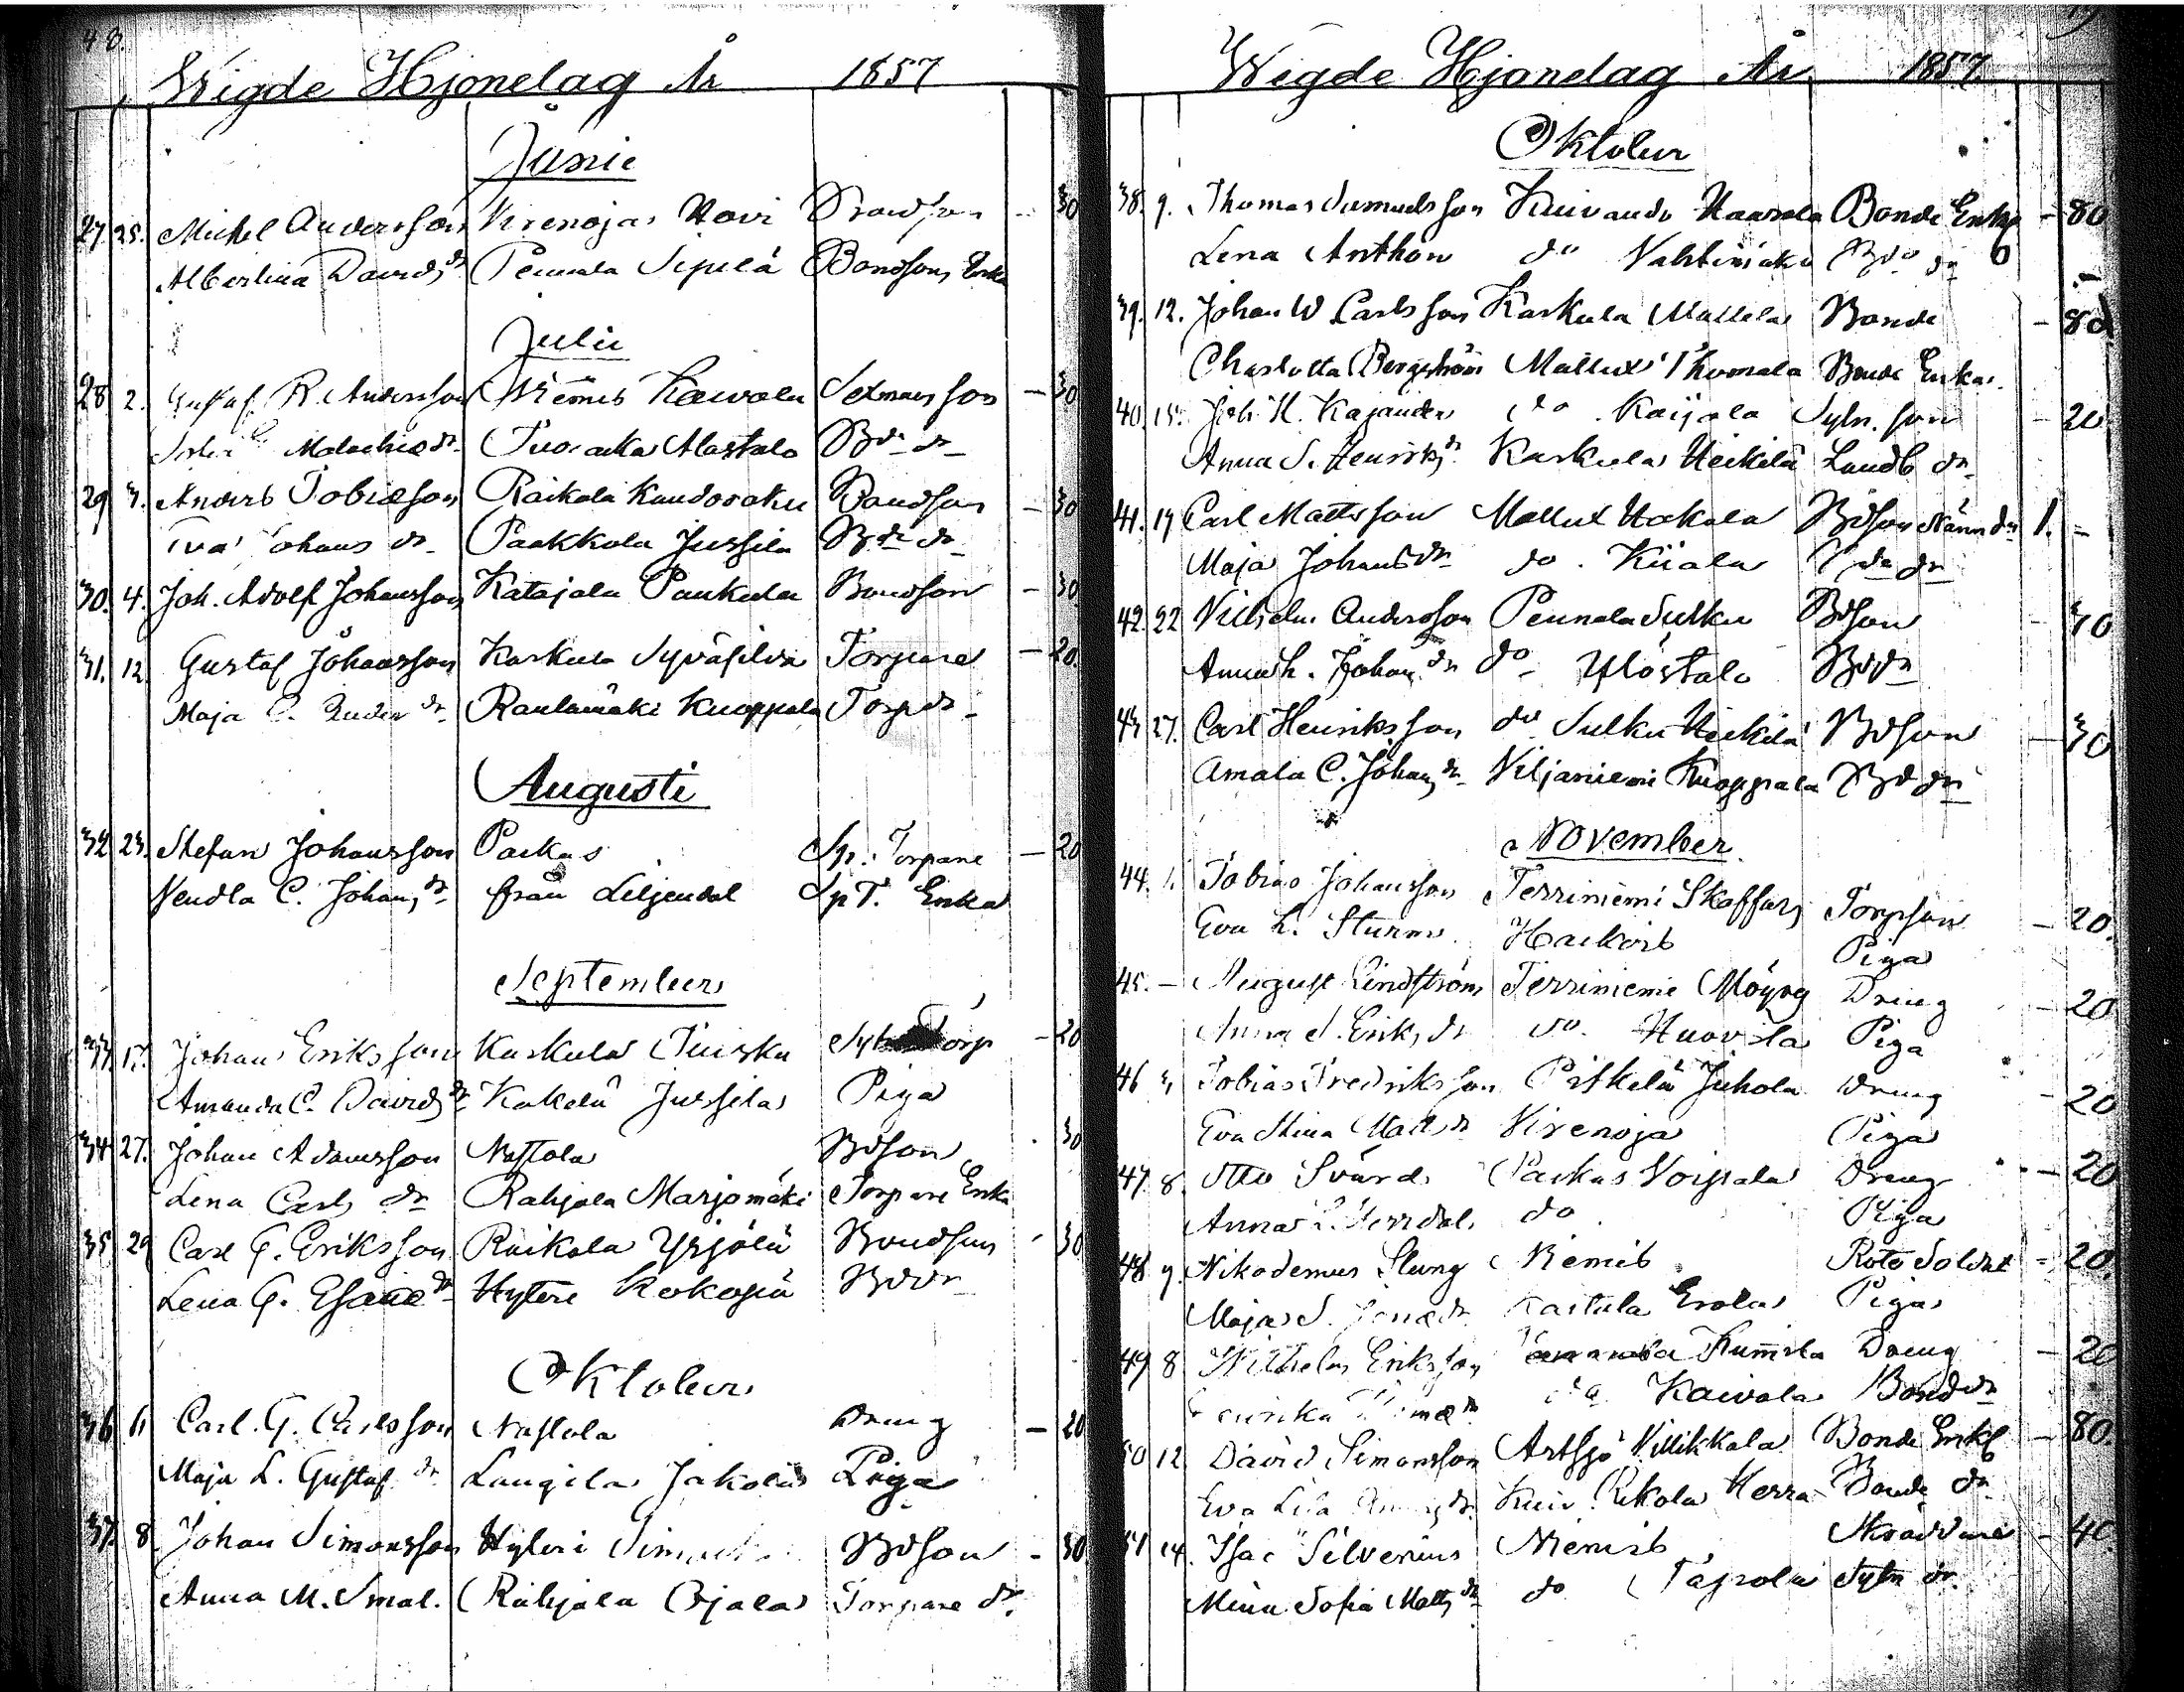 48.
Wigde Hjonelag År 1857
Junie
27 25. Michel Andersson Virenoja Hovi Bondson - 30
Albertina Davids dr Pennala Sipilä Bondsons Enka
Julii
28 2. Gustaf R. Andersson Niemis Kaivola Sexmansson - 30
Malachiæ dr Alastalo Bd dr
29 3. Anders Tobiæson Raikala Bondson - 30
Eva Johans dr Paakkola Jussila Bd dr
30. 4. Joh. Adolf Johansson Katajala Paukula Bondson - 30
31. 12. Gustaf Johansson Karkula Syväsilda Torpare - 20.
Maja dr Rautamäki Kuoppala Torp dr
Augusti
32 23. Stefan Johansson Parkas Sp. Torpare - 20
Vendla C. Johans dr från Liljendal Sp T. Enka
September
33. Johan Eriksson Karkula Tuiska Torp - 20
Amanda C. Davids dr Kakela Jussila Piga
34 27. Johan Adamsson Nastola Bdson 30
Lena Carls dr Rahjala Marjomäki Torpare Enka
35 29 Carl G. Eriksson Raikala Yrjölä Bondson - 30
Lena G. Esaiæ dr Hyteri Kokoja Bd dr
Oktober
36 6 Carl. G. Carlsson Nastola Dreng - 20
Maja L. Gustaf dr Laugila Jakola Piga
37. 8 Johan Simonsson Hyteri Bdson - 30
Anna M. Smal. Rahjala Ojala Torpare dr.
Wigde Hjonelag År 1857.
Oktober
38. 9. Thomas Samuelsson Kuivando Haarala Bonde Enkl - 80
Lena Anthon do Vahtimäki Bd dr
39. 12. Johan W Carlsson Karkula Mattila Bonde - 80
Charlotta Bergström Mallux Thomala Bonde Enka.
40. 15. Joh. H. Kajander do Kaijala Sytn. son - 20
Anna S. Henriks dr Karkula Heikilä Landb dr
41. 19 Carl Mattsson Mallux Hakala Bdson Nämnd 1. -
Maja Johans dr do. Kiiala
42. 22 Vilhelm Andersson Pennala Sulku Bdson - 30
Anna h. Johans dr do Ylöstalo Bd dr
43 27. Carl Henriksson do Sulku Heikilä Bdson - 30
Amala C. Johans dr Viljaniemi Kuoppala Bd dr
November
44. 1. Tobias Johansson Terriniemi Skaffars Torpson - 20.
Eva L. Sturm Haikois Piga
45. - August Lindström Terriniemi Dreng - 20
Anna S. Eriks dr do. Huovila Piga
46 3 Tobias Fredriksson Pitkelä Juhola Dreng - 20
Eva Stina Matts dr Virenoja Piga
47. 8. Otto Svärd Parkas Voipala Dreng - 20
Anna do. Piga
48 9 Nikodemus Slung Niemis Rote Soldat - 20.
Maja S. dr Kaitala Erola Piga
49 8 Vilhelm Eriksson Kummila Dreng - 20
do Kaivola Bond dr
50 12 David Simonsson Artsjö Villikkala Bonde Enkl - 80.
Eva Lisa Kuiv. Rikola Herra Bonde dr
51 14. Isac Silvenius Niemis Skräddare - 40.
Mina Sofia Matts dr do Tapola Sytn dr.